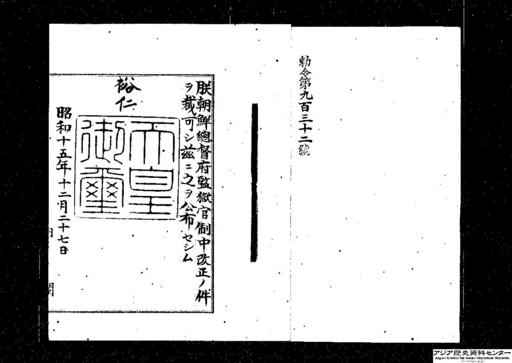 勅令第九百三十二號
朕朝鮮總督府監獄官制中改正ノ件
ヲ裁可シ茲ニ之ヲ公布セシム
裕仁
天皇
御璽
昭和十五年十二月二十七日
アジア歴史資料センター
Japan Center for Asian Historical Records